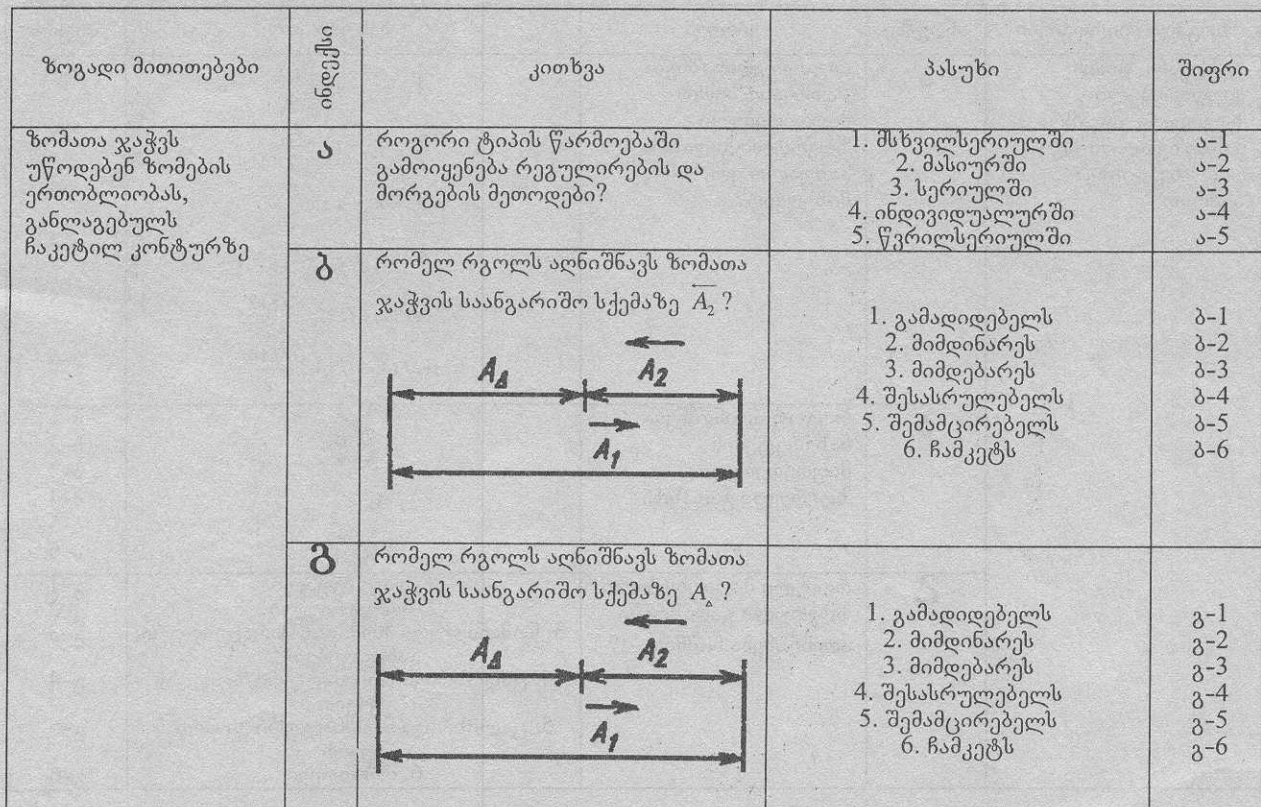 ზოგადი მითითებები
ინდექსი
კითხვა
პასუხი
შიფრი
ზომათა ჯაჭვს
უწოდებენ ზომების
ერთობლიობას,
განლაგებულს
ჩაკეტილ კონტურზე
ა
როგორი ტიპის წარმოებაში
გამოიყენება რეგულირების და
მორგების მეთოდები?
1. მსხვილსერიულში
2. მასიურში
3. სერიულში
4. ინდივიდუალურში
5. წვრილსერიულში
ა-1
ა-2
ა-3
ა-4
ა-5
ბ
რომელ რგოლს აღნიშნავს ზომათა
ჯაჭვის საანგარიშო სქემაზე A₂ ?
A_Δ
A₂
A₁
1. გამადიდებელს
2. მიმდინარეს
3. მიმდებარეს
4. შესასრულებელს
5. შემამცირებელს
6. ჩამკეტს
ბ-1
ბ-2
ბ-3
ბ-4
ბ-5
ბ-6
გ
რომელ რგოლს აღნიშნავს ზომათა
ჯაჭვის საანგარიშო სქემაზე A_Δ ?
A_Δ
A₂
A₁
1. გამადიდებელს
2. მიმდინარეს
3. მიმდებარეს
4. შესასრულებელს
5. შემამცირებელს
6. ჩამკეტს
გ-1
გ-2
გ-3
გ-4
გ-5
გ-6